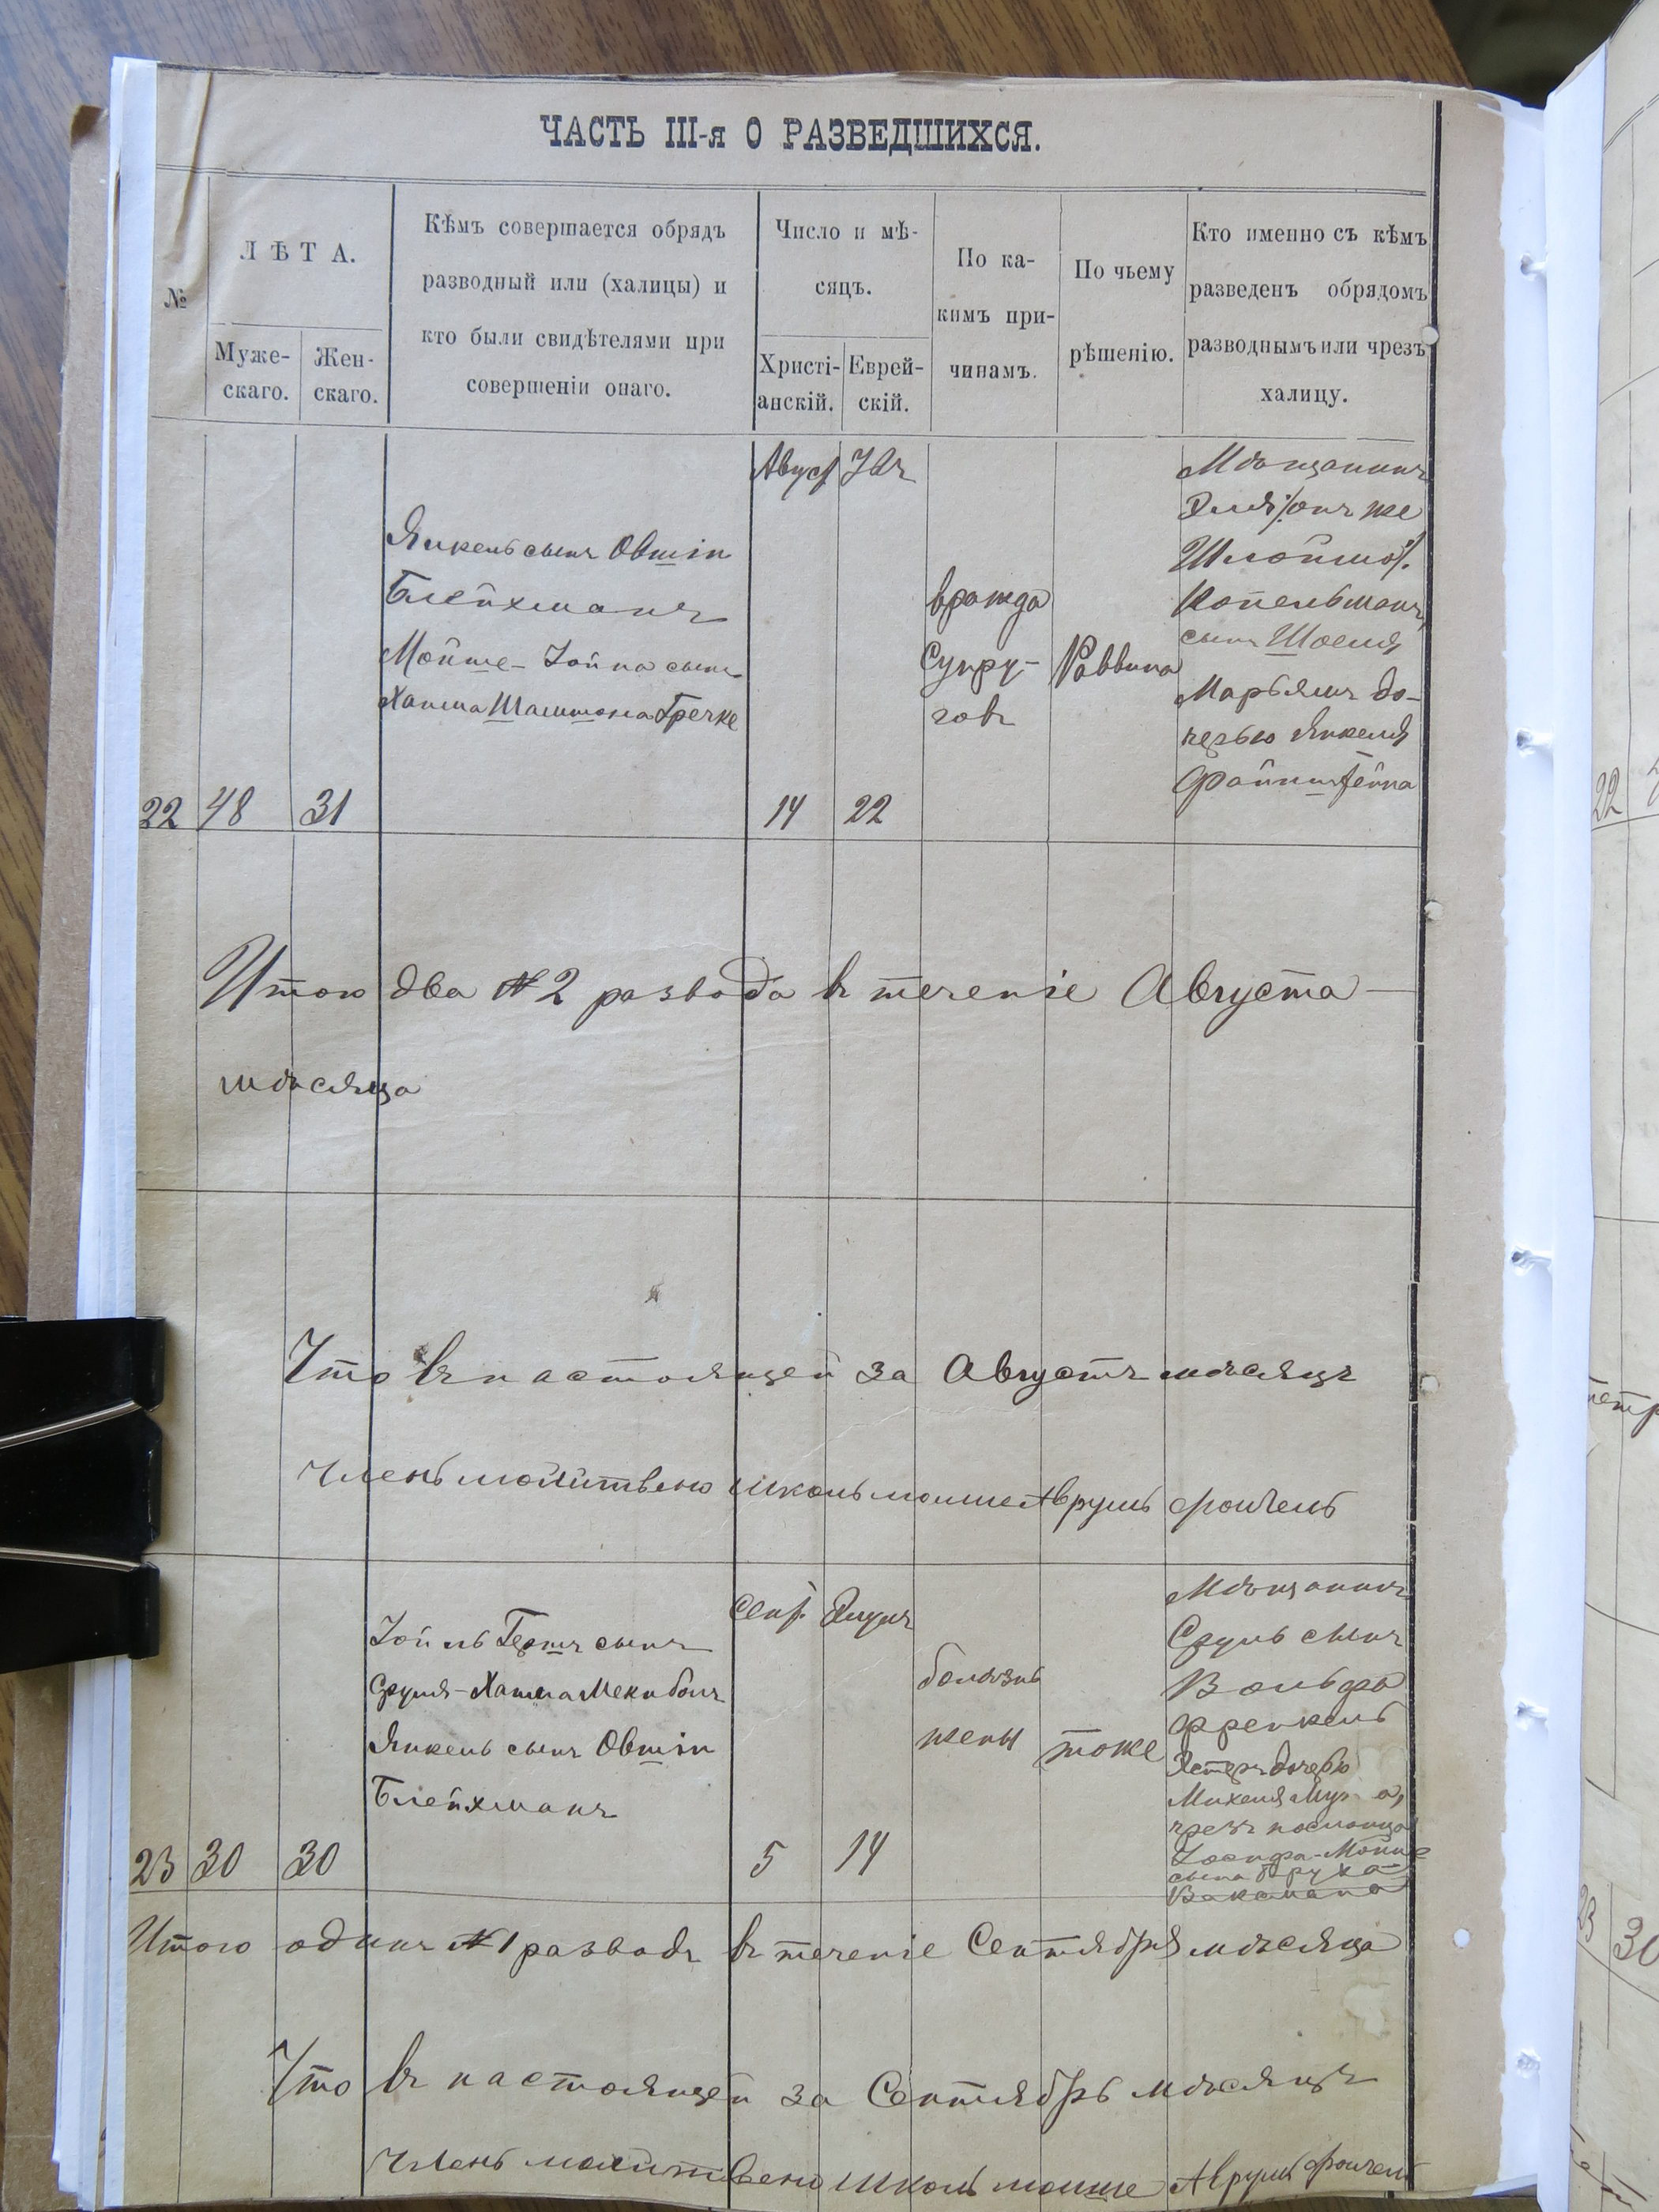 ЧАСТЬ III-я О РАЗВЕДШИХСЯ.
№
ЛѢТА.
Муже-
скаго.
Жен-
скаго.
Кѣмъ совершается обрядъ
разводный или (халицы) и
кто были свидѣтелями при
совершеніи онаго.
Число и мѣ-
сяцъ.
Христі-
анскій.
Еврей-
скій.
По ка-
кимъ при-
чинамъ.
По чьему
рѣшенію.
Кто именно съ кѣмъ
разведенъ обрядомъ
разводнымъ или чрезъ
халицу.
22
48
31
Янкель сынъ Овшія
Блейхманъ
Мойше-Іойна сынъ
Хаима Шамшона Гречке
Август
14
 Авъ
22
вражда
Супру-
говъ
Раввина
Мѣщанинъ
Эля /: онъ же
Шлойма :/
Копельманъ,
сынъ Шоеля
Марьямъ до-
черью Янкеля
Файнштейна
Итого два № 2 развода въ теченіе Августа
мѣсяца
Что въ настоящей за Августъ мѣсяцъ
членъ молитвено школь мошше Аврумъ
23
30
30
Іойль Гершъ сынъ
Сруля-Хаима
Янкель сынъ Овшія
Блейхманъ
Сент.
5
Элулъ
14
болѣзнь
жены
тоже
Мѣщанинъ
Сруль сынъ
Вольфа
Френкель
Эстеръ дочерью
Михеля
чрезъ посланца
Іосифа-Мойше
сына Боруха
Ваксмана
Итого одинъ № 1 разводъ въ теченіе Сентября мѣсяца
Что въ настоящей за Сентябрь мѣсяцъ
членъ молитвено школь мошше Аврумъ
22
23
30